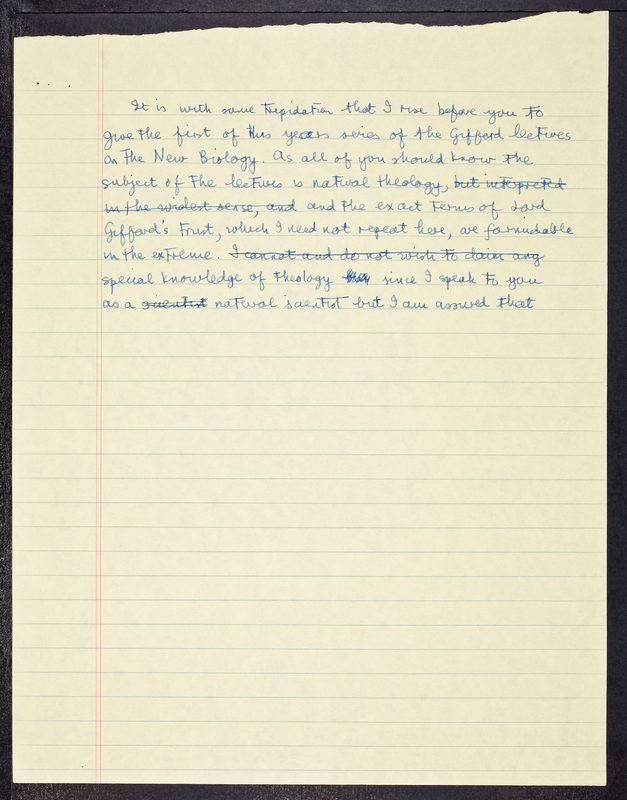 It is with some trepidation that I rise before you to
give the first of this years series of the Gifford lectures
on the New Biology. As all of you should know the
subject of the lectures is natural theology, but intepreted
in the widest sense, and and the exact terms of Lord
Gifford's Trust, which I need not repeat here, are formidable
in the extreme. I cannot and do not wish to claim any
special knowledge of theology since I speak to you
as a scientist natural scientist but I am assured that